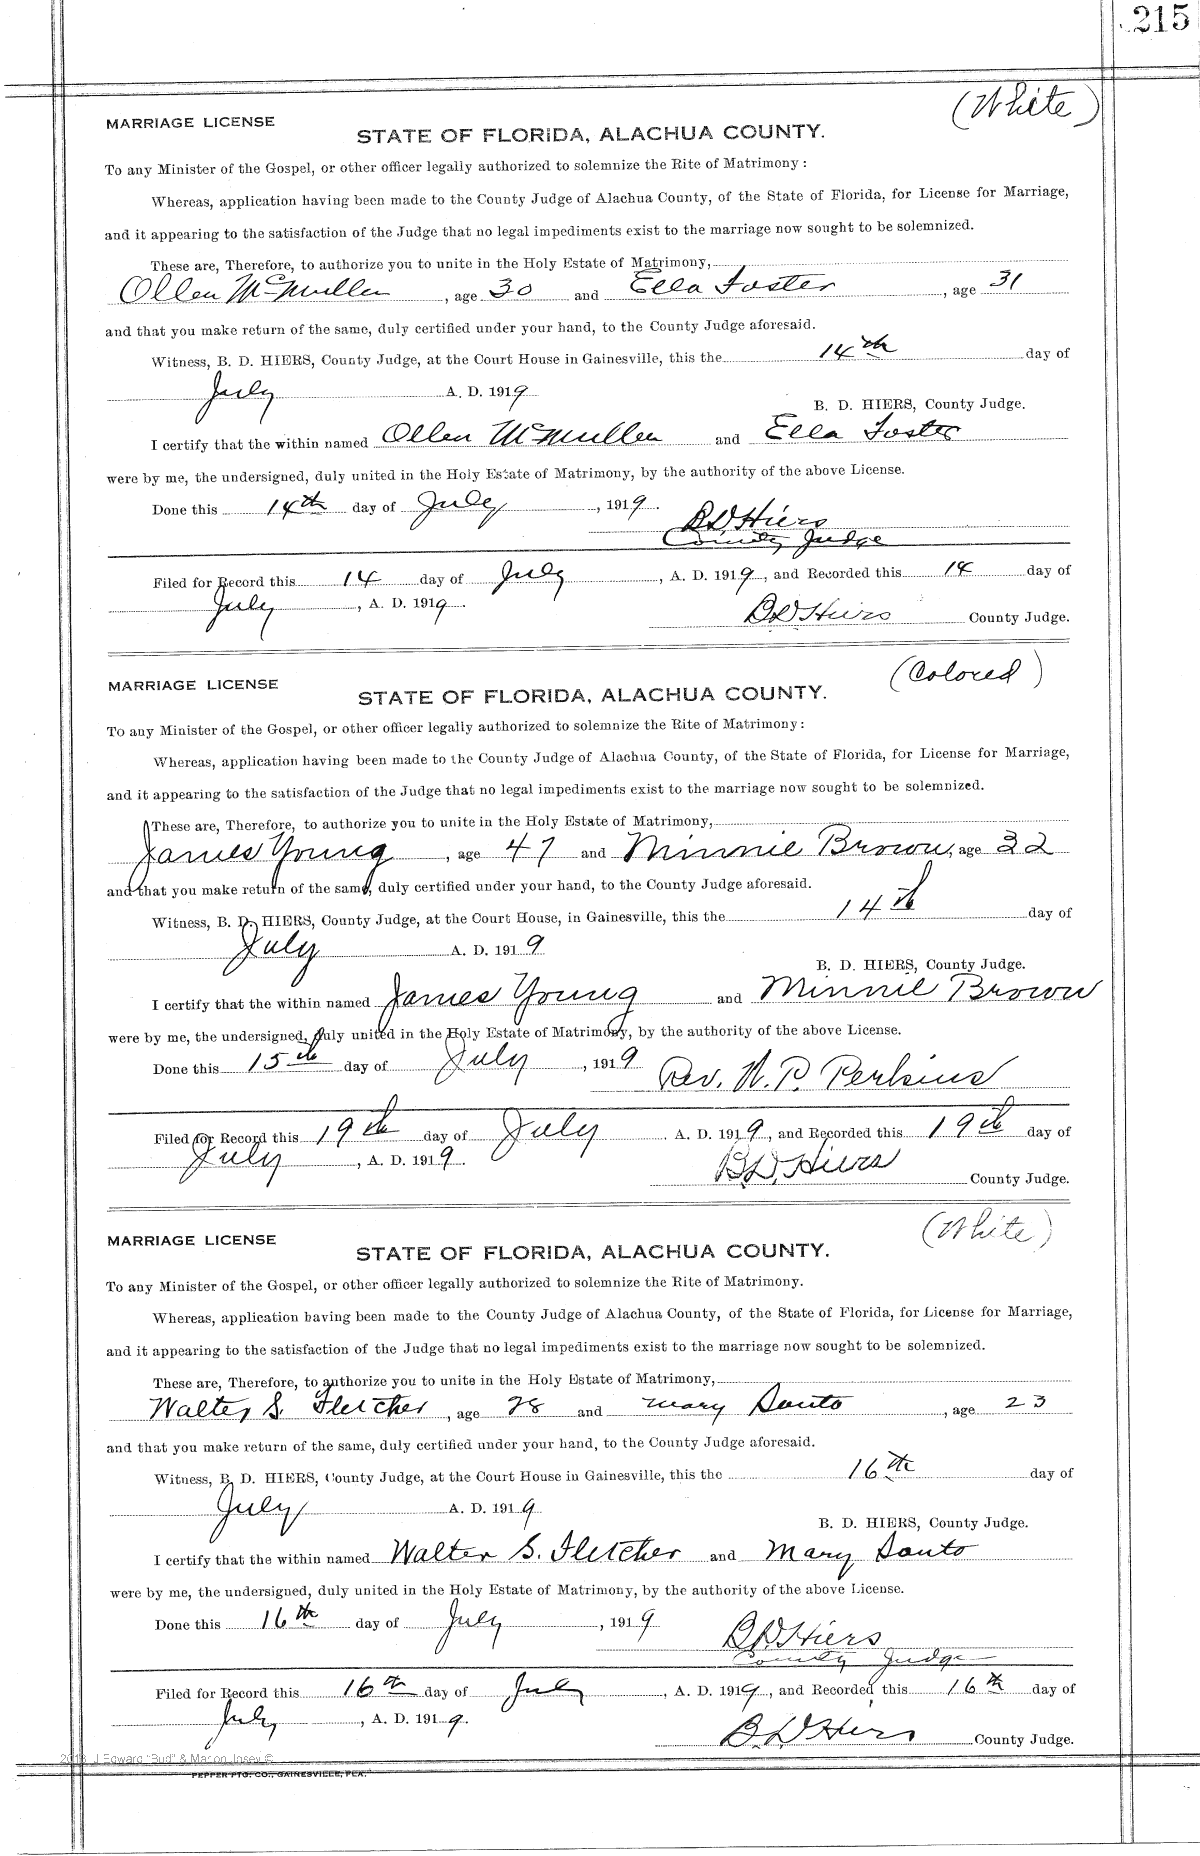 215
(White)
MARRIAGE LICENSE
STATE OF FLORIDA, ALACHUA COUNTY.
To any Minister of the Gospel, or other officer legally authorized to solemnize the Rite of Matrimony:
Whereas, application having been made to the County Judge of Alachua County, of the State of Florida, for License for Marriage,
and it appearing to the satisfaction of the Judge that no legal impediments exist to the marriage now sought to be solemnized.
These are, Therefore, to authorize you to unite in the Holy Estate of Matrimony,
Ollen McMullen, age 30 and Ella Foster, age 31
and that you make return of the same, duly certified under your hand, to the County Judge aforesaid.
Witness, B. D. HIERS, County Judge, at the Court House in Gainesville, this the 14th day of
July A. D. 1919
B. D. HIERS, County Judge.
I certify that the within named Ollen McMullen and Ella Foster
were by me, the undersigned, duly united in the Holy Estate of Matrimony, by the authority of the above License.
Done this 14th day of July, 1919. B D Hiers
County Judge
Filed for Record this 14 day of July, A. D. 1919, and Recorded this 14 day of
July, A. D. 1919. B D Hiers County Judge.
(Colored)
MARRIAGE LICENSE
STATE OF FLORIDA, ALACHUA COUNTY.
To any Minister of the Gospel, or other officer legally authorized to solemnize the Rite of Matrimony:
Whereas, application having been made to the County Judge of Alachua County, of the State of Florida, for License for Marriage,
and it appearing to the satisfaction of the Judge that no legal impediments exist to the marriage now sought to be solemnized.
These are, Therefore, to authorize you to unite in the Holy Estate of Matrimony,
James Young, age 47 and Minnie Brown, age 32
and that you make return of the same, duly certified under your hand, to the County Judge aforesaid.
Witness, B. D. HIERS, County Judge, at the Court House, in Gainesville, this the 14th day of
July A. D. 1919
B. D. HIERS, County Judge.
I certify that the within named James Young and Minnie Brown
were by me, the undersigned, duly united in the Holy Estate of Matrimony, by the authority of the above License.
Done this 15th day of July, 1919 Rev. N. P. Perkins
Filed for Record this 19th day of July A. D. 1919, and Recorded this 19th day of
July, A. D. 1919. B. D. Hiers County Judge.
(White)
MARRIAGE LICENSE
STATE OF FLORIDA, ALACHUA COUNTY.
To any Minister of the Gospel, or other officer legally authorized to solemnize the Rite of Matrimony.
Whereas, application having been made to the County Judge of Alachua County, of the State of Florida, for License for Marriage,
and it appearing to the satisfaction of the Judge that no legal impediments exist to the marriage now sought to be solemnized.
These are, Therefore, to authorize you to unite in the Holy Estate of Matrimony,
Walter S. Fletcher, age 28 and Mary Souto, age 23
and that you make return of the same, duly certified under your hand, to the County Judge aforesaid.
Witness, B. D. HIERS, County Judge, at the Court House in Gainesville, this the 16th day of
July A. D. 1919
B. D. HIERS, County Judge.
I certify that the within named Walter S. Fletcher and Mary Souto
were by me, the undersigned, duly united in the Holy Estate of Matrimony, by the authority of the above License.
Done this 16th day of July, 1919 B D Hiers
County Judge
Filed for Record this 16th day of July, A. D. 1919, and Recorded this 16th day of
July, A. D. 1919. B. D. Hiers County Judge.
J Edward "Bud" & Marion Josey ©
PEPPER PTG. CO., GAINESVILLE, FLA.